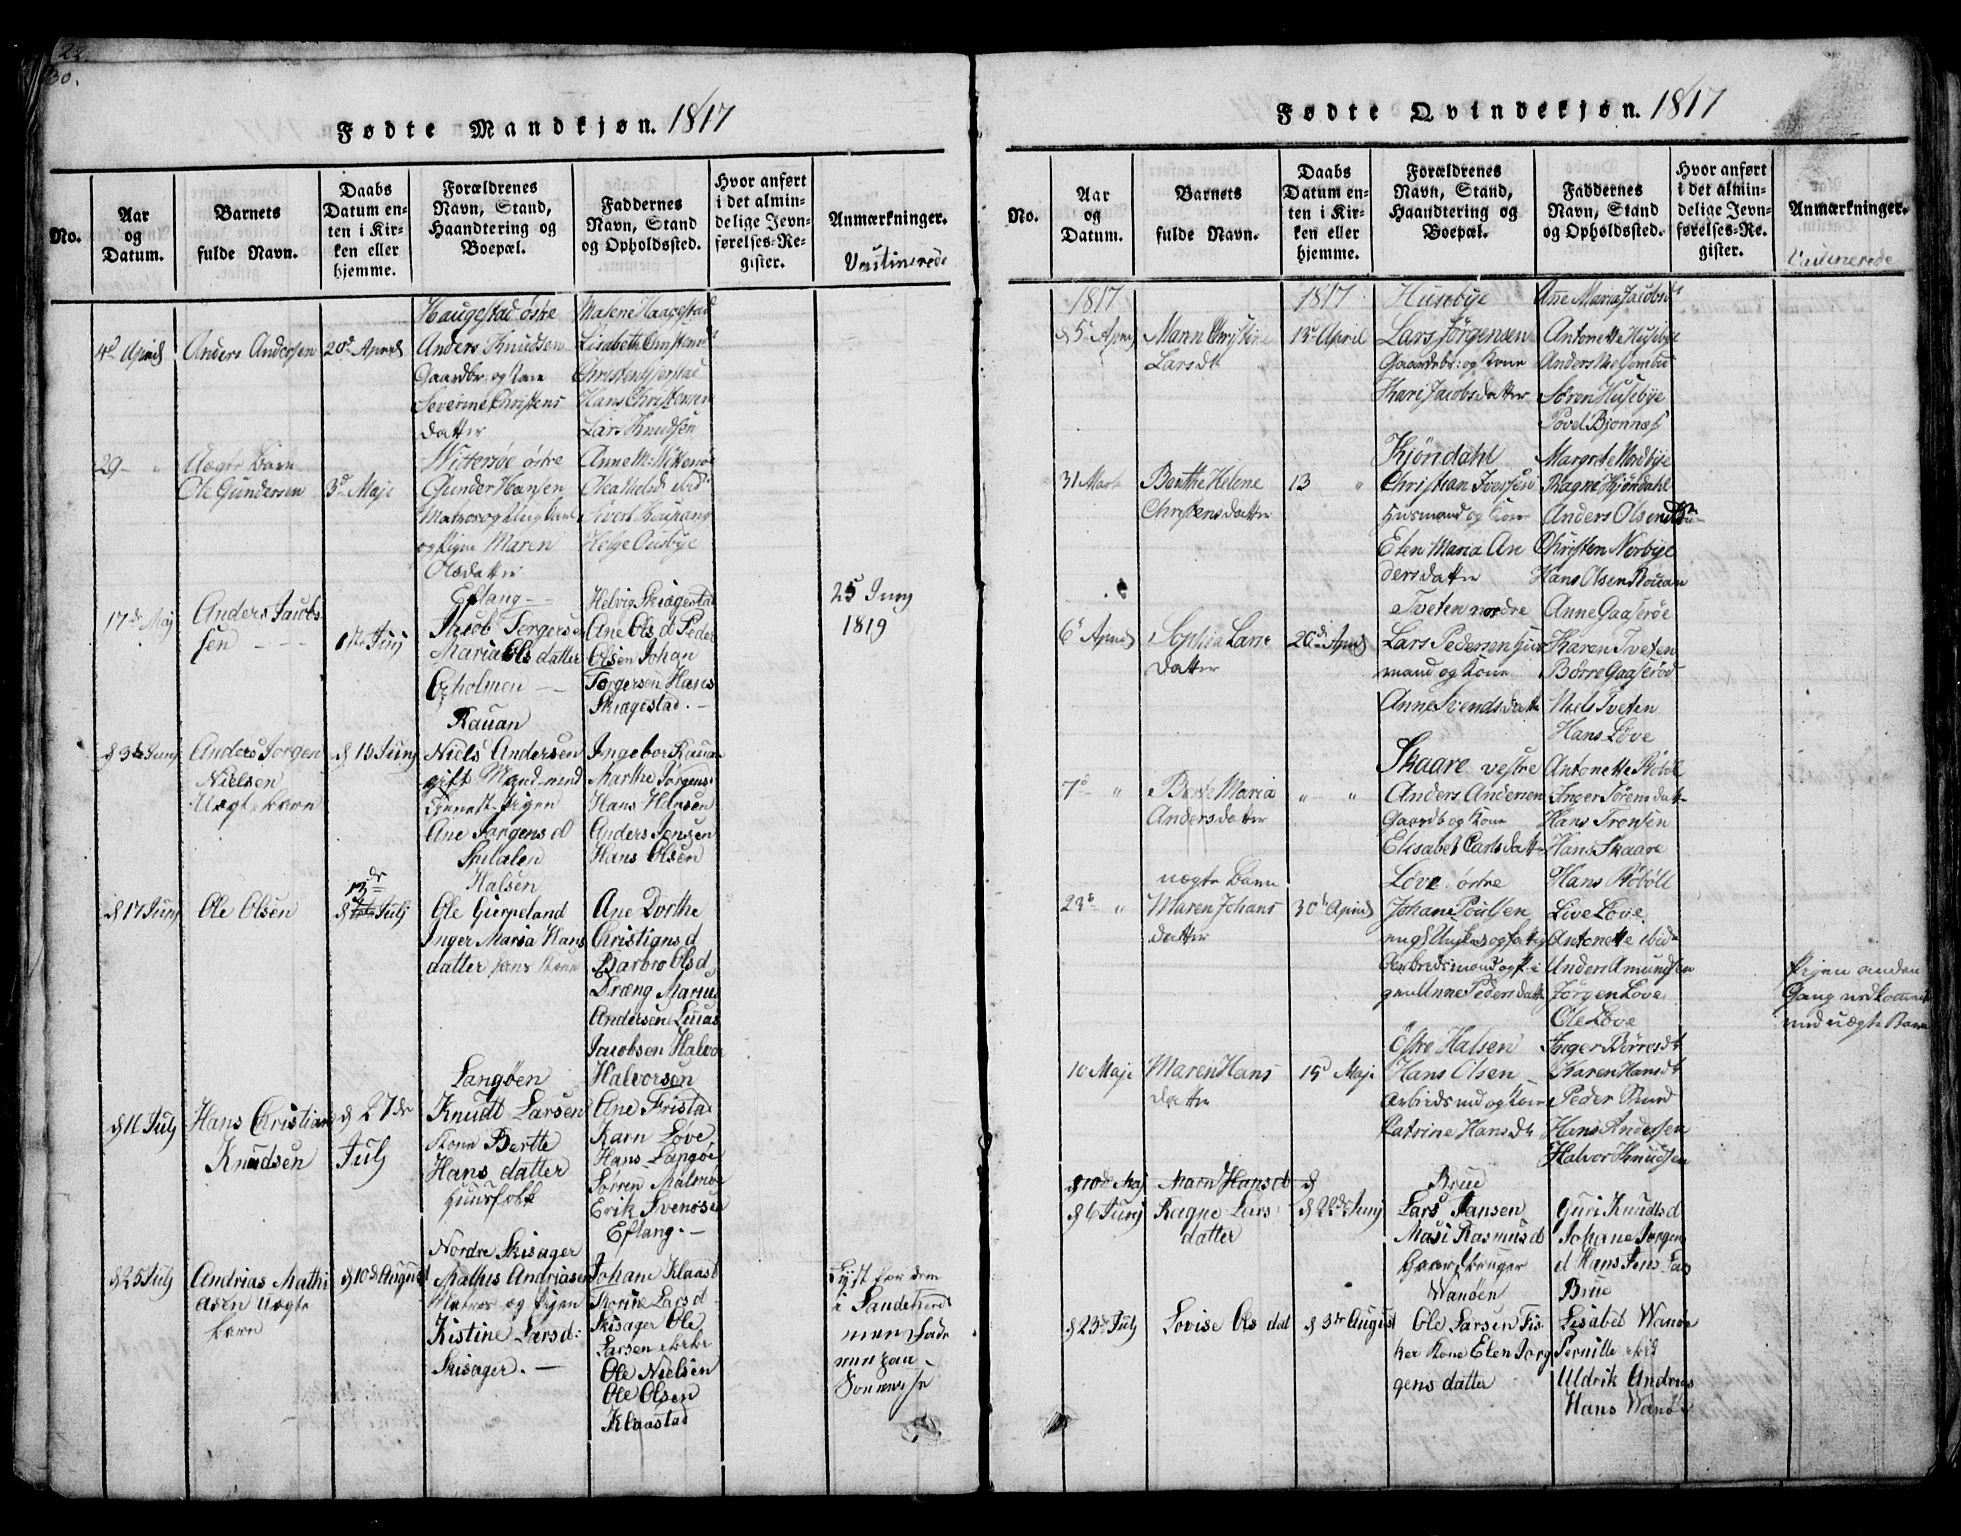 22
30.
Fødte Mandkjøn. 1817
No.
Aar
og
Datum.
Barnets
fulde Navn.
Daabs
Datum en-
ten i Kir-
ken eller
hjemme.
Forældrenes
Navn, Stand,
Haandtering og
Boepæl.
Faddernes
Navn, Stand
og Opholdssted.
Hvor anført
i det almin-
delige Jevn-
førelses-Re-
gister.
Anmærkninger.
4d April
Anders Andersen
20d April
Haugestad østre
Anders Knudsen
Gaardbr: og Kone
Severine Christens
datter
Malene Haagestad
Hans Christensen
Lars Knudsen
29 "
Uægte barn
Ole Gundersen
3d Maji
Wittersøe østre
Gunder Hansen
og Pigen Maren
Olsdatter
Anne M: Wittersøe
Helge Ousbye
17de Maj
Anders Jacob
sen
1ste Junj
Eftang
Jacob Torgersen
Maria Olsdatter
Østholmen
Helvig Skiagestad
Ane Ols d Peder
Olsen Johan
Torgersen Hans
Skiagestad.
25 Juny
1819
d 3de Junj
Anders Jorgen
Nielsen
Uægte barn
d 15 Junj
Rauan
Niels Andersen
gift Mand med
Pigen
Ane Jorgens d
Ingebor Rauan
Marthe Jorgens
Hans Hansen
Anders Jensen
Hans Olsen
d 17 Junj
Ole Olsen
13de
Julj
Halsen
Ole Gierpeland
Inger Maria Hans
datter hans Kone
Ane Dorthe
Christians d
Barbro Ols d
Dræng Marius
Andersen Lucas
Jacobsen Halvor
Halvorsen
d 11 Julj
Hans Christian
Knudsen
d 27de
Julj
Langøen
Knudt Larsen
Kone Berthe
Hans datter
Huusfolk
Ane Fristad
Karn Løve
Hans Langøe
Sørren Malmøe
Erik Svenøsen
Eftang.
d 25 Julj
Andrias Mathi
asen uægte
barn
d 10de August
Nordre Skisager
Mathis Andriasen
Matros og Pigen
Kistine Lars d:
Skisager.
Johane Klaast
Thorine Lars d
Skisager Ole
Larsen
Ole Nielsen
Ole Olsen
Klaastad
Lyst for dem
i Sandeherred
Fødte Qvindekjøn. 1817
No.
Aar
og
Datum.
Barnets
fulde Navn.
Daabs
Datum en-
ten i Kir-
ken eller
hjemme.
Forældrenes
Navn, Stand,
Haandtering og
Boepæl.
Faddernes
Navn, Stand
og Opholdssted.
Hvor anført
i det almin-
delige Jevn-
førelses-Re-
gister.
Anmærkninger.
1817
d 5 April
Maren Christine
Larsdt
1817
13d April
Husebye
Lars Jørgensen
Gaardbr: og Kone
Kari Jacobsdatter
Anne Maria Jacobsdt
Antonette Husebye
Søren Husebye
Povel Bjønnes
31 Marts
Berthe Helene
Christensdatter
13 "
Kjøndahl
Christian Iversen
Husmand og Kone
Elen Maria An
dersdatter
Margrete Nordbye
Ragne Kjøndahl
Anders Olsen
Christen Norbye
Hans Olsen Rouan
6d April
Sophia Lars
datter
20de April
Tveten nordre
Lars Pedersen Huus
mand og Kone
Anne Svendsdatter
Anne Gaaserøe
Karen Tveten
Børre Gaaserød
Niels Tveten
Hans Løve
7d "
Berte Maria
Andersdatter
" "
Skaare vestre
Anders Andersen
Gaardb og Kone
Elisabet Carlsdatter
Antonette Røbøl
Inger Sørensdatter
Hans Tronsen
Hans Skaare
Hans Røbøll
23d "
uægte Barn
Maren Johans
datter
30d April
Løve østre
Johan Poulsen
Arbeidsmand og Pi
gen Anne Pedersdatter
Live Løve
Antonette ibid
Anders Amundsen
Jørgen Løve
Ole Løve
Pigen anden
Gang nedkommet
med uægte Barn
10 Maji
Maren Hans
datter
15d Maji
Østre Halsen
Hans Olsen
Arbeidsmd og Kone
Catrine Hansdt
Inger Børresdt
Karen Hansdt
Peder
Hans Andersen
Halvor Knudsen
d 10de Maj
Marn Hans d
d
d 6 Junj
Ragne Lars
datter
d 22de Junj
Brue
Lars Jansen
Masi Rasmus d
Gaardbruger
Guri Knudts d
Johane Jorgen
d Hans Jens Las
Brue
d 23de Julj
Lovise Ols dat
d 3de August
Wanøen
Ole Larsen Fis
ker Kone Elen Jorg
gens datter
Lisabet Wanøe
Pernille ibid
Uldrik Andrias
Hans Wanøe